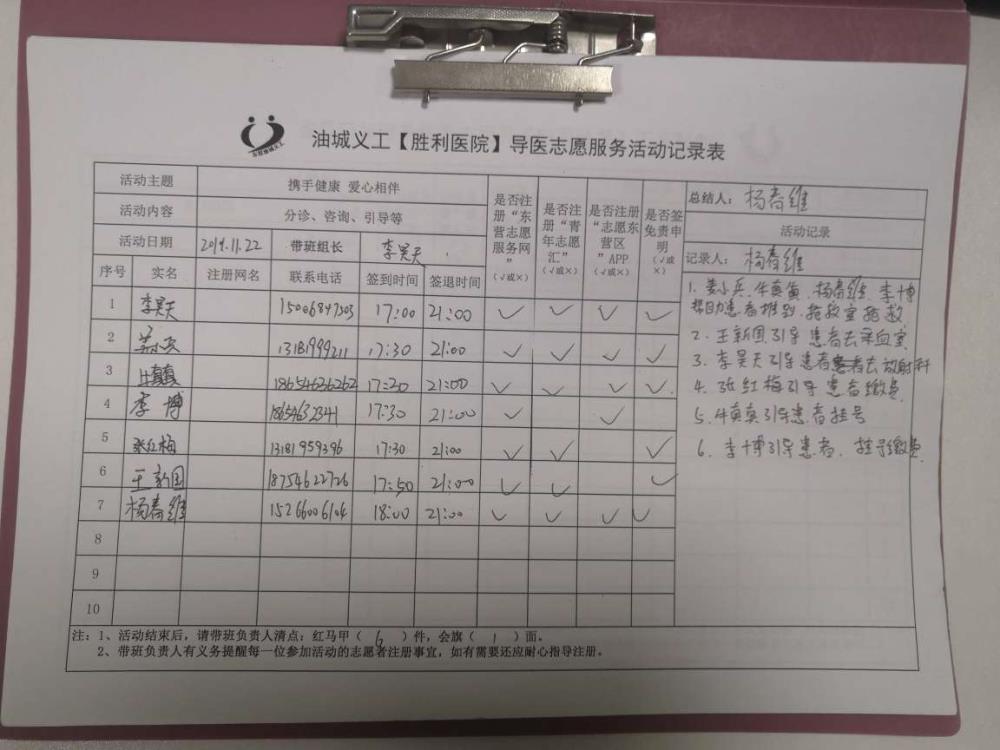 油城义工【胜利医院】导医志愿服务活动记录表
活动主题 携手健康 爱心相伴
活动内容 分诊、咨询、引导等
活动日期 2019.11.22 带班组长 李昊天
序号 实名 注册网名 联系电话 签到时间 签退时间
是否注册“东营志愿服务网”（√或×）
是否注册“青年志愿汇”（√或×）
是否注册“志愿东营区”APP（√或×）
是否签免责申明（√或×）
1 李昊天 15006847503 17:00 21:00 √ √ √ √
2 姜小兵 13181999211 17:30 21:00 √ √ √ √
3 牛真真 18654636262 17:30 21:00 √ √ √ √
4 李博 18654632341 17:30 21:00 √ √
5 张红梅 13181959396 17:30 21:00 √ √ √
6 王新国 18754622726 17:50 21:00 √ √ √
7 杨春维 15266006104 18:00 21:00 √ √ √ √
8
9
10
总结人：杨春维
活动记录
记录人：杨春维
1. 姜小兵、牛真真、杨春维、李博
帮助患者推到抢救室抢救
2. 王新国引导患者去采血室
3. 李昊天引导患者去放射科
4. 张红梅引导患者缴费
5. 牛真真引导患者挂号
6. 李博引导患者，挂号缴费
注：1、活动结束后，请带班负责人清点：红马甲（ 6 ）件，会旗（ 1 ）面。
2、带班负责人有义务提醒每一位参加活动的志愿者注册事宜，如有需要还应耐心指导注册。